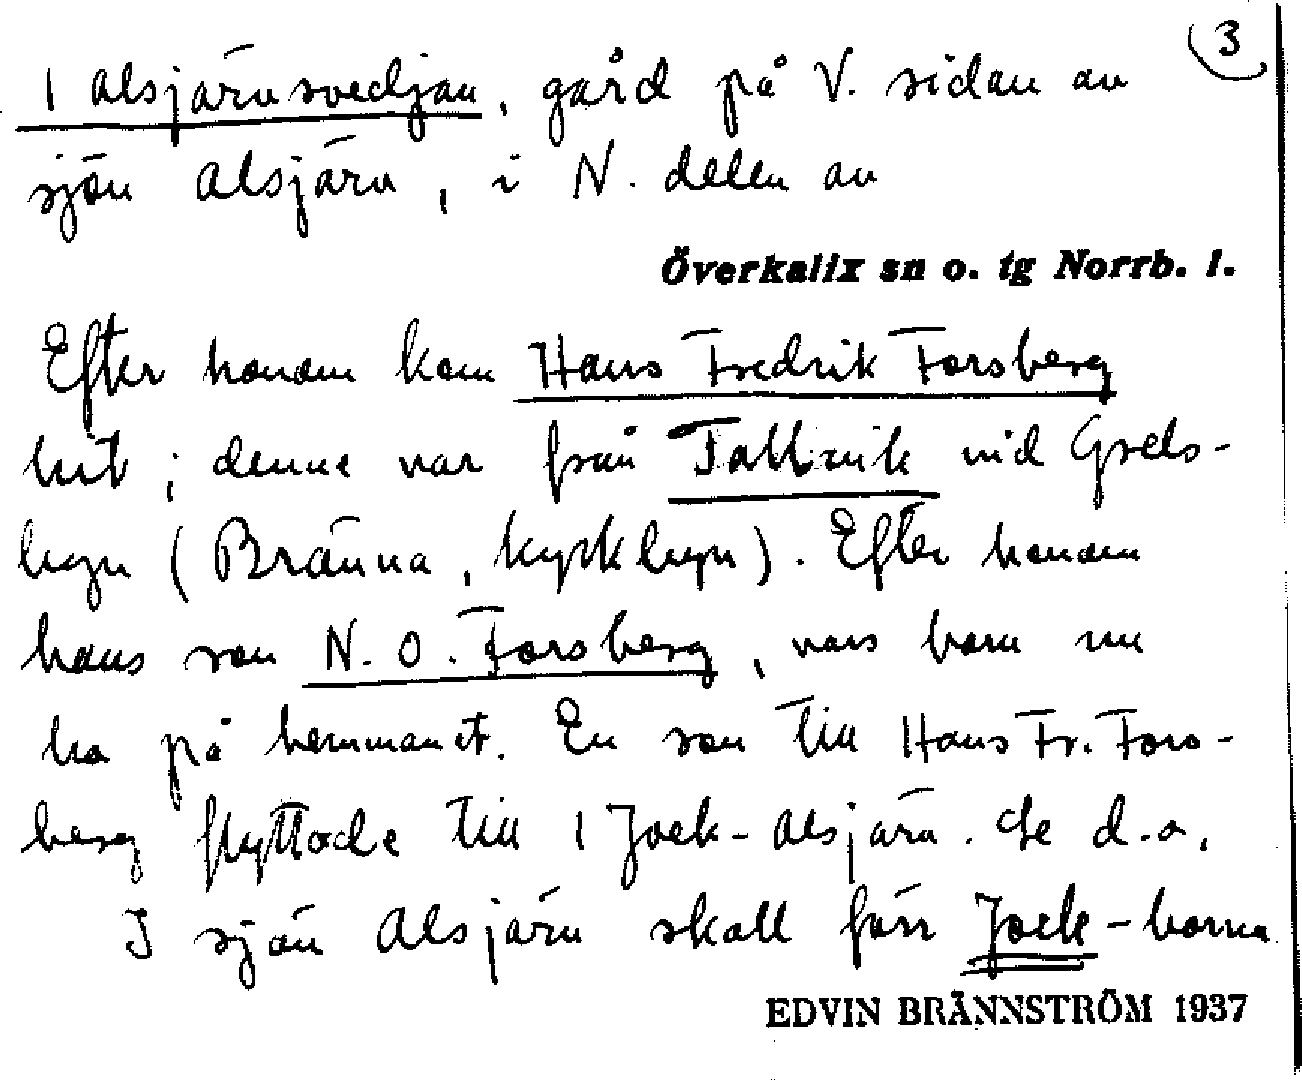 3
1 Alsjärvsvedjan, gård på V. sidan av
sjön Alsjärv, i N. delen av
Överkalix sn o. tg Norrb. l.
Efter honom kom Hans Fredrik Forsberg
hit; denne var från Tallvik vid Grels-
byn (Bränna, kyrkbyn). Efter honom
hans son N. O. Forsberg, vars barn nu
bo på hemmanet. En son till Hans Fr. Fors-
berg flyttade till 1 Jock-Alsjärv. Se d.o.
I sjön Alsjärv skall förr Jock-borna
EDVIN BRÄNNSTRÖM 1937